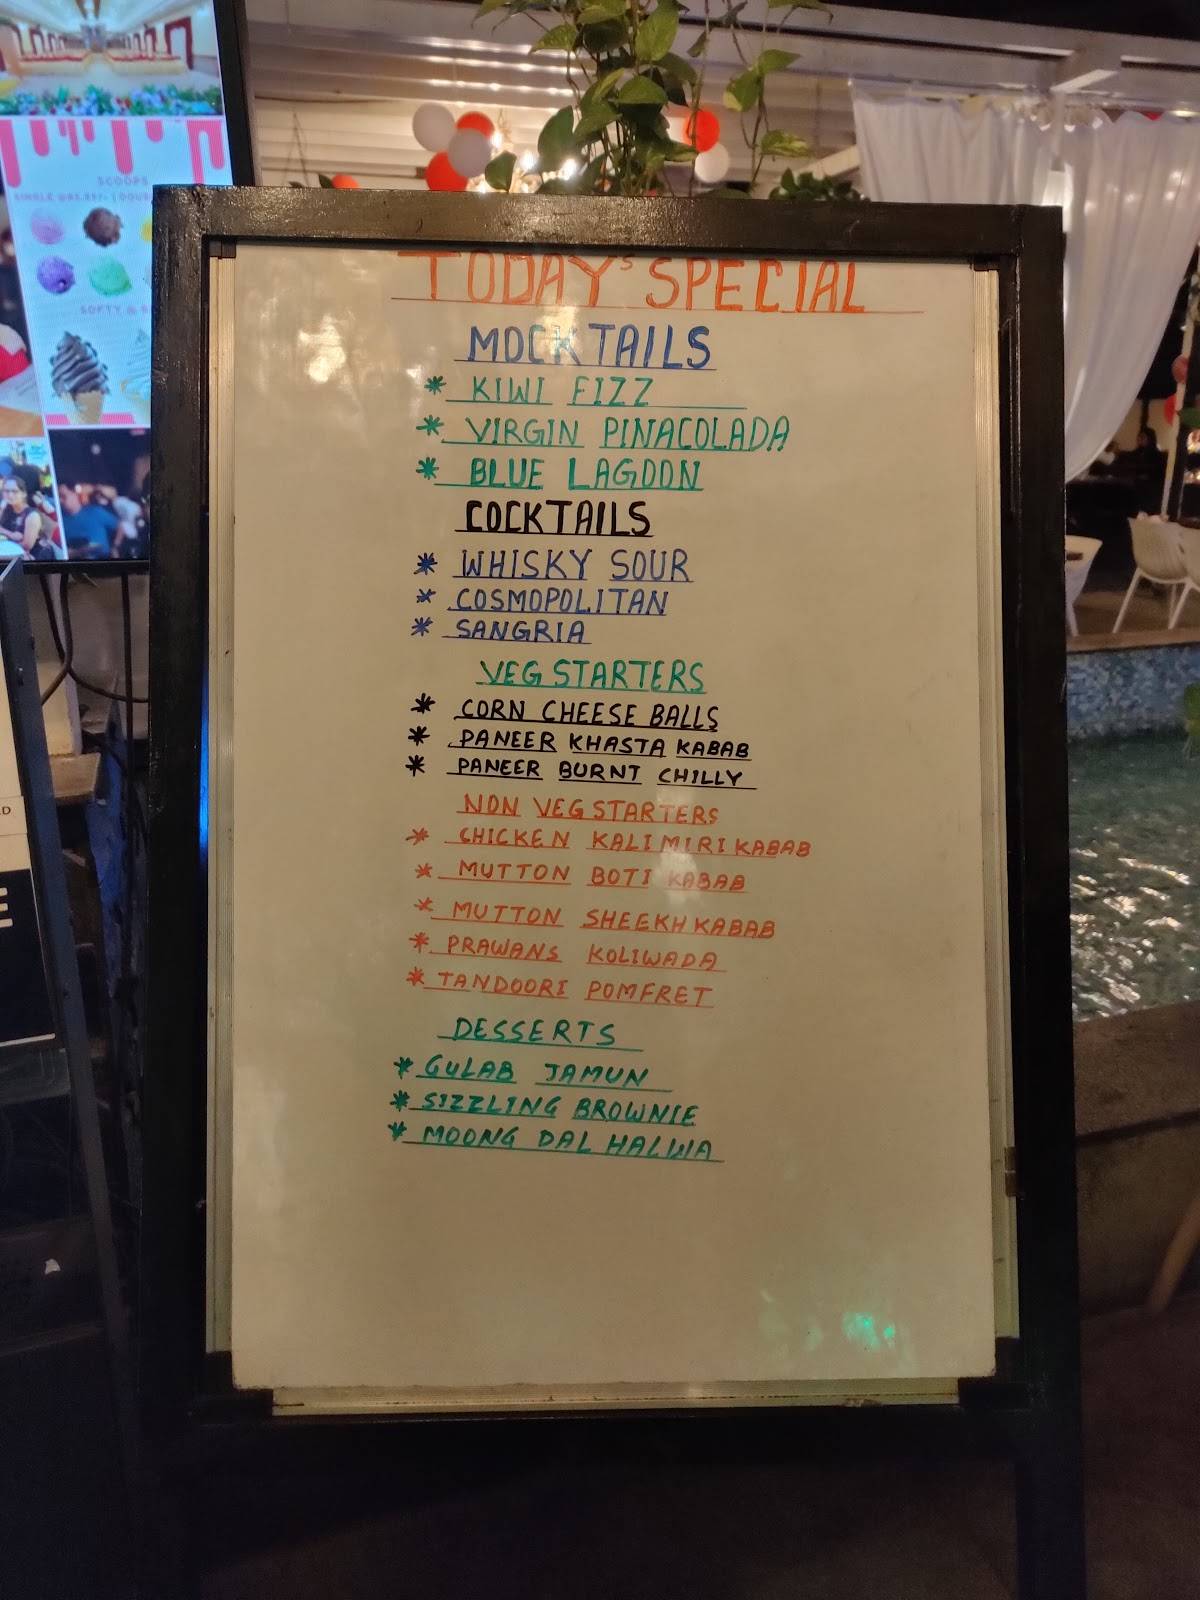 SCOOPS
TODAY'S SPECIAL
MOCKTAILS
* KIWI FIZZ
* VIRGIN PINACOLADA
* BLUE LAGOON
COCKTAILS
* WHISKY SOUR
* COSMOPOLITAN
* SANGRIA
VEG STARTERS
* CORN CHEESE BALLS
* PANEER KHASTA KABAB
* PANEER BURNT CHILLY
NON VEG STARTERS
* CHICKEN KALI MIRI KABAB
* MUTTON BOTI KABAB
* MUTTON SHEEKH KABAB
* PRAWANS KOLIWADA
* TANDOORI POMFRET
DESSERTS
* GULAB JAMUN
* SIZZLING BROWNIE
* MOONG DAL HALWA